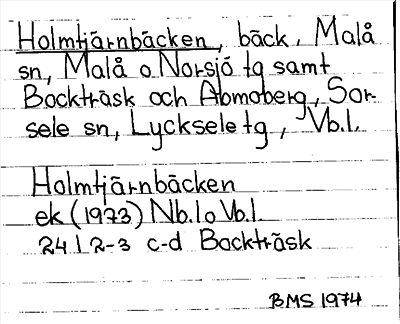 Holmtjärnbäcken, bäck, Malå
sn, Malå o Norsjö tg samt
Backträsk och Abmoberg, Sor-
sele sn, Lycksele tg, Vb.l.
Holmtjärnbäcken
ek (1973) Nb.l o Vb.l
24 I 2-3 c-d Backträsk
BMS 1974